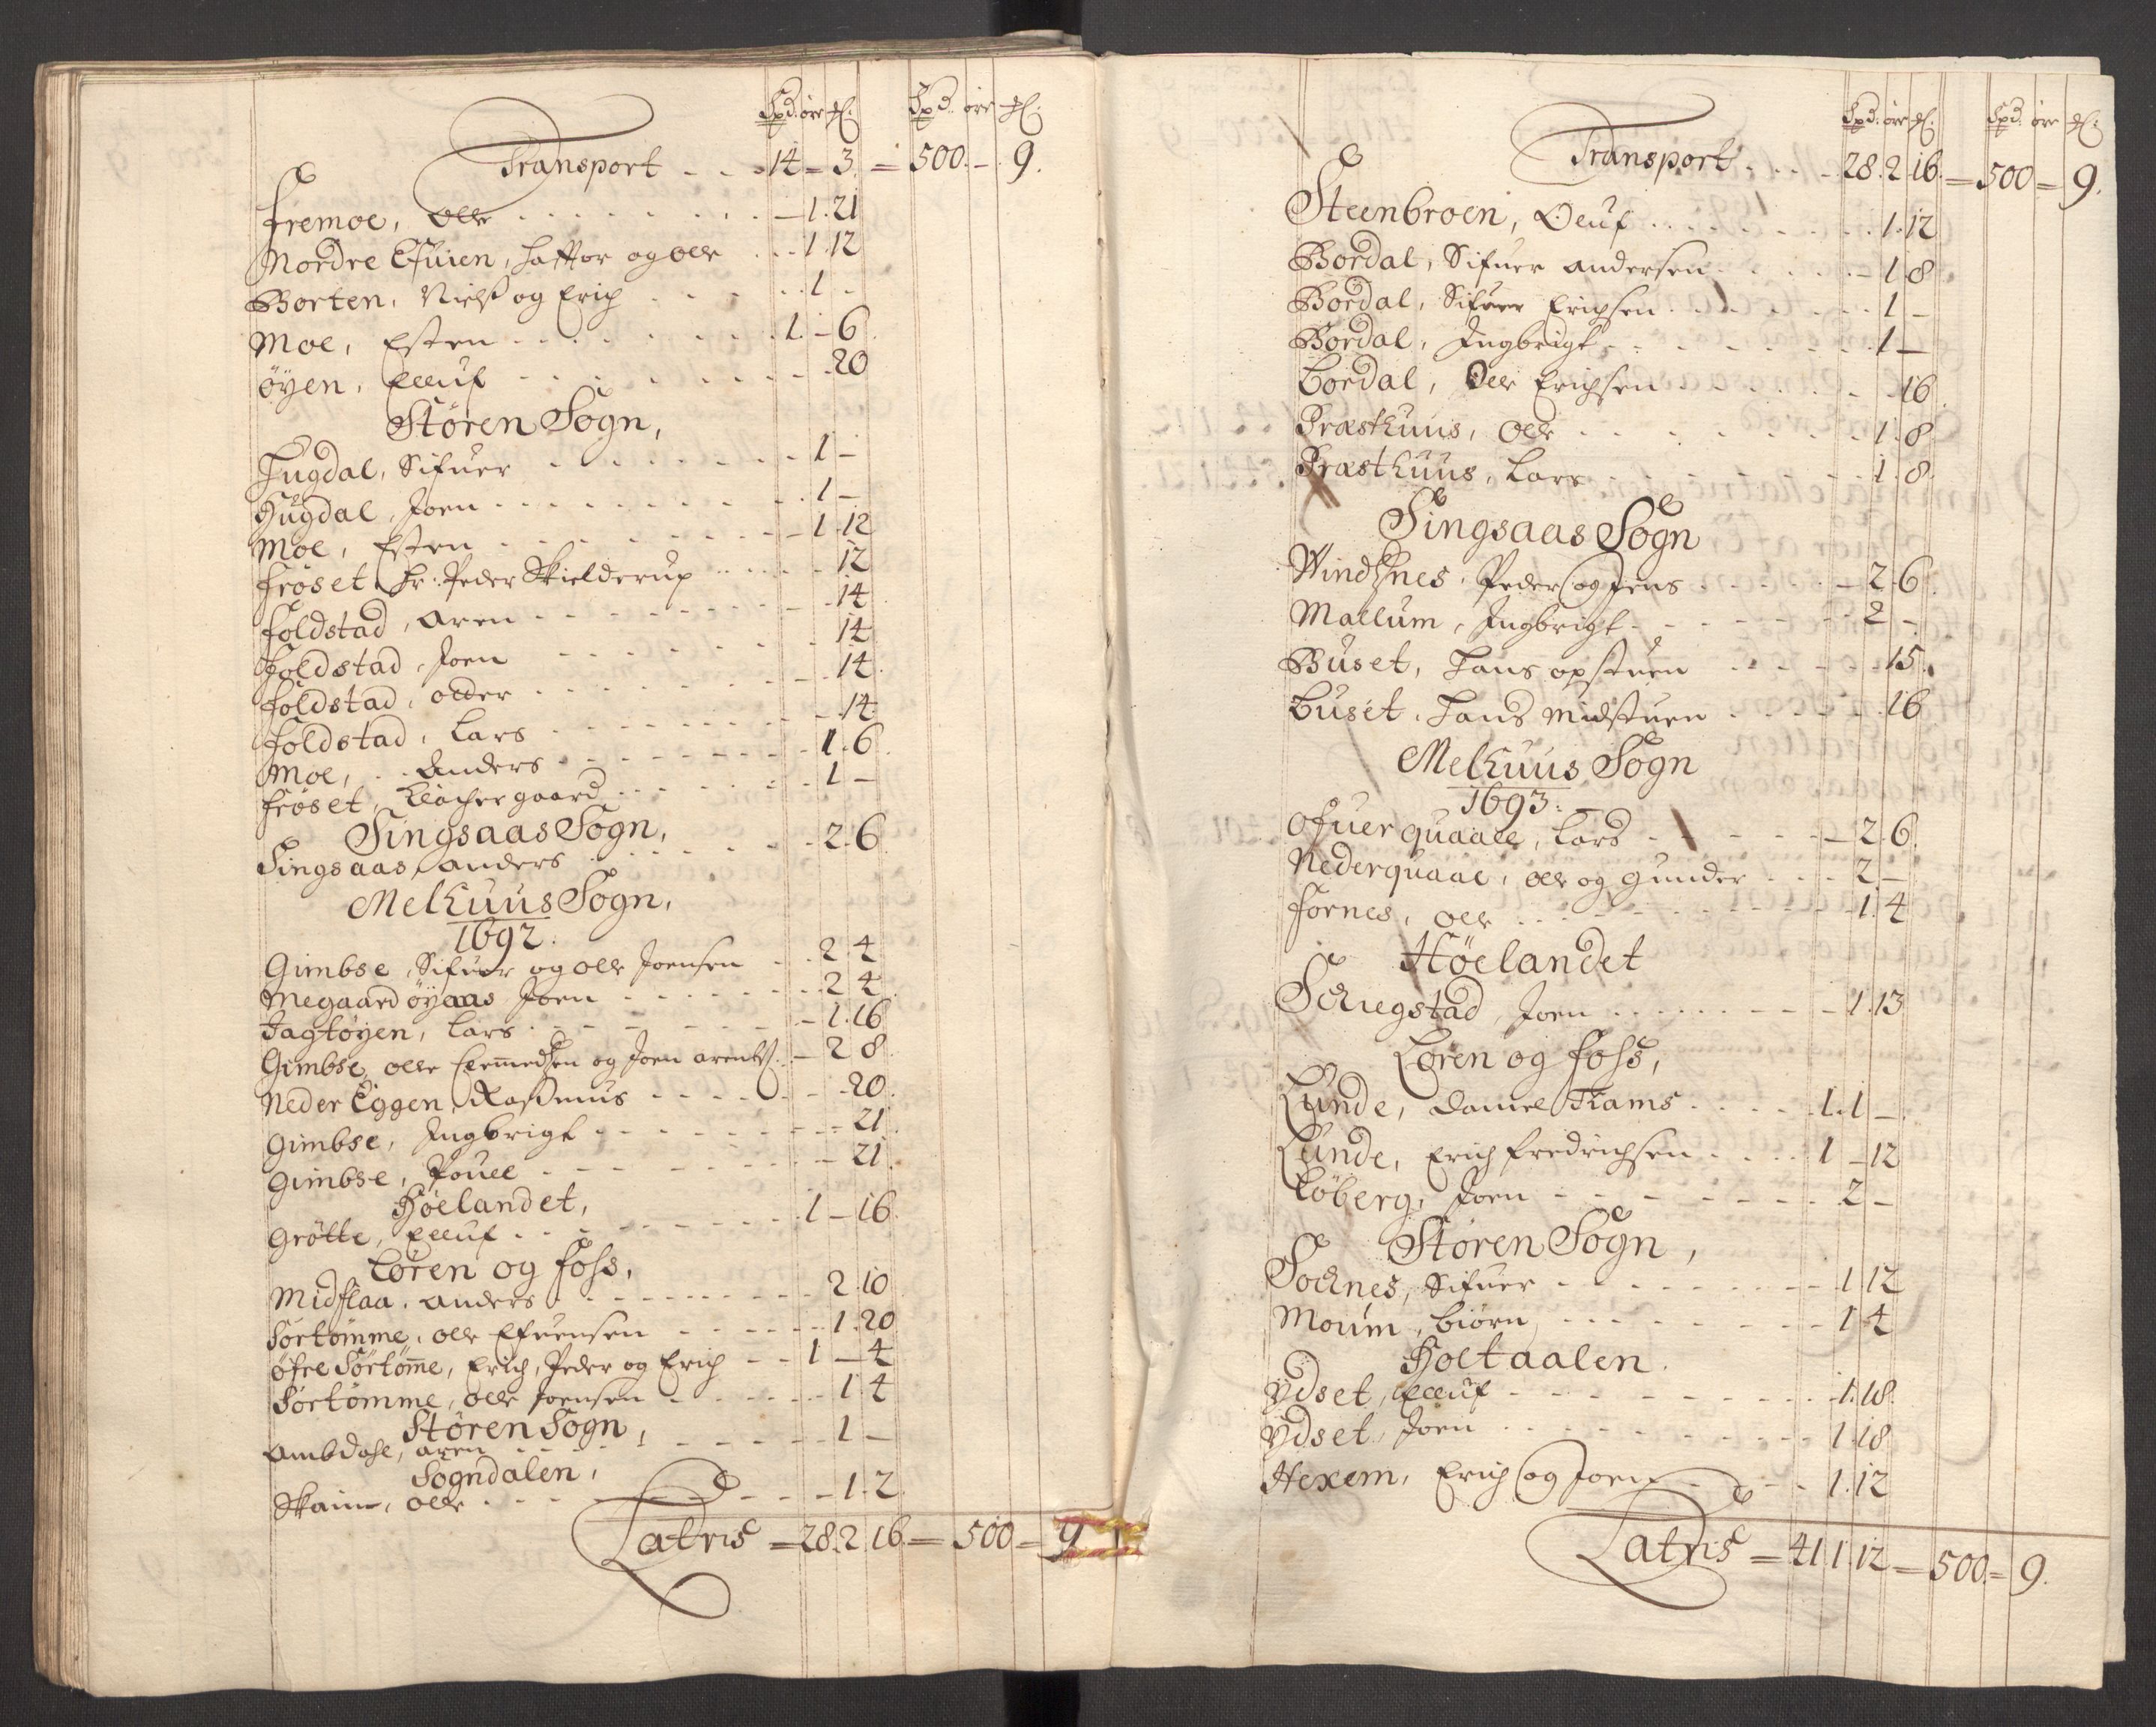 Spd. ört ℔. Spd. ört ℔.
Transport - - - 14 - 3. = 500. - 9.
Fremoe, Olle - 1. 21
Nordre Efuien, Haftor og Olle 1. 12
Borten, Nielß og Erich 1 -
Moe, Esten 1. - 6
Öÿen, Elluf 20
Stören Sogn,
Hugdal, Sifuer 1 -
Hugdal, Joen 1 -
Moe, Esten 1. 12
Fröset Hr. Peder Skielderup 12
Foldstad, Aren 14
Foldstad, Joen 14
Foldstad, Odder 14
Foldstad, Lars 14
Moe, Anders 1. 6
Fröset, Klöchergaard 1 -
Singsaas Sogn,
Singsaas, Anders 2. 6
Melhuus Sogn,
1692.
Gimbse, Sifuer og Olle Joensen 2. 4
Megaard öÿaas Joen 2 4
Jagtöyen, Lars 1. 16
Gimbse, Olle Clemedsen og Joen Arents. 2 8
Neder Eggen, Rasmus 20.
Gimbse, Ingbrigt 21
Gimbse, Pouell 21
Höelandet,
Grötte, Elluf 1 - 16
Lören og Foss,
Midflaa, Anders 2. 10
Sörtömme, Olle Efuensen 1. 20
Öfre Sörtöme, Erich, Peder og Erich 1 - 4
Sörtömme, Olle Joensen 1 4
Stören Sogn,
Ambdahl, Aren 1 -
Sogndalen,
Skaim, Olle 1. 2
Latris = 28. 2. 16. = 500 = 9
Spd. ört ℔. Spd. ört ℔.
Transport 28. 2 16. = 500 = 9.
Steenbroen, Oluf 1. 12
Bordal, Sifuer Andersen 1 8
Bordal, Sifuer Erichsen 1 -
Bordal, Ingbrigt 1 -
Bordal, Olle Erichsen 16
Præsthuus, Olle 1. 8
Præsthuus, Lars 1. 8
Singsaas Sogn
Windsnes, Peder og Jens 2. 6
Mallum, Ingbrigt 2 -
Buset, Hans opstuen 15.
Buset, Hans Midstuen 16
Melhuus Sogn
1693:
Ofuer quaale, Lars 2. 6.
Nederquaal, Olle og Gunder 2 -
Fornes, Olle 1. 4
Höelandet
Schiegstad, Joen 1. 13
Lören og Foss,
Lunde, Daniel Trams 1. 1 -
Lunde, Erich Fredrichsen 1 - 12
Löberg, Joen 2 -
Stören Sogn,
Sochnes, Sifuer 1. 12
Moum, Biörn 1 4
Holtaalen.
Ydset, Elluf 1. 18
Ydset, Joen 1. 18
Hexem, Erich og Joen 1. 12
Latris = 41 1. 12 = 500. = 9.